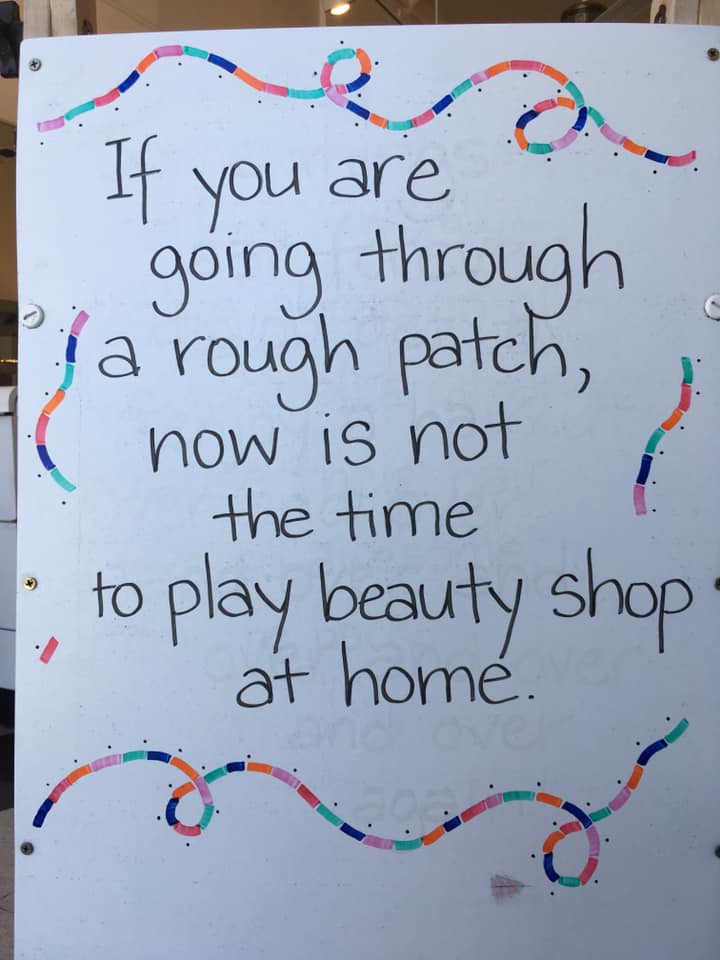 If you are
going through
a rough patch,
now is not
the time
to play beauty shop
at home.